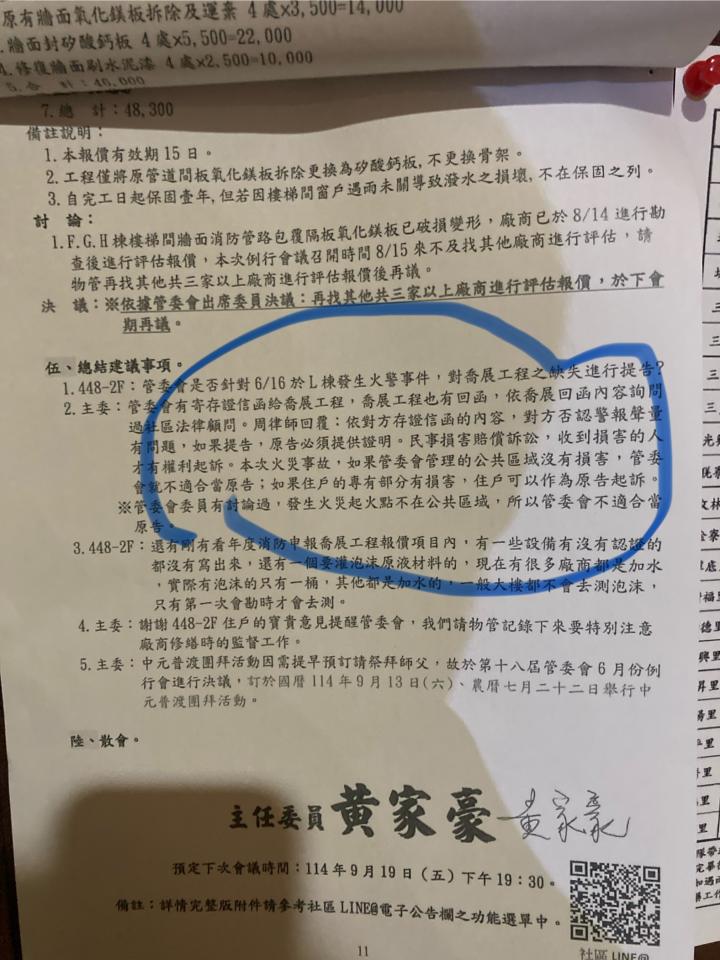 原有牆面氧化鎂板拆除及運棄 4處x3,500=14,000
.牆面封矽酸鈣板 4處x5,500=22,000
4.修復牆面刷水泥漆 4處x2,500=10,000
5.合 計:46,000
7.總 計:48,300
備註說明:
1.本報價有效期15日。
2.工程僅將原管道間板氧化鎂板拆除更換為矽酸鈣板,不更換骨架。
3.自完工日起保固壹年,但若因樓梯間窗戶遇雨未關導致潑水之損壞,不在保固之列。
討 論:
1.F.G.H棟樓梯間牆面消防管路包覆隔板氧化鎂板已破損變形,廠商已於8/14進行勘
查後進行評估報價,本次例行會議召開時間8/15來不及找其他廠商進行評估,請
物管再找其他共三家以上廠商進行評估報價後再議。
決 議:※依據管委會出席委員決議:再找其他共三家以上廠商進行評估報價,於下會
期再議。
伍、總結建議事項。
1.448-2F:管委會是否針對6/16於L棟發生火警事件,對喬展工程之缺失進行提告?
2.主委:管委會有寄存證信函給喬展工程,喬展工程也有回函,依喬展回函內容詢問
過社區法律顧問。周律師回覆:依對方存證信函的內容,對方否認警報聲量
有問題,如果提告,原告必須提供證明。民事損害賠償訴訟,收到損害的人
才有權利起訴。本次火災事故,如果管委會管理的公共區域沒有損害,管委
會就不適合當原告;如果住戶的專有部分有損害,住戶可以作為原告起訴。
※管委會委員有討論過,發生火災起火點不在公共區域,所以管委會不適合當
原告。
3.448-2F:還有剛有看年度消防申報喬展工程報價項目內,有一些設備有沒有認證的
都沒有寫出來,還有一個要灌泡沫原液材料的,現在有很多廠商都是加水
,實際有泡沫的只有一桶,其他都是加水的,一般大樓都不會去測泡沫,
只有第一次會勘時才會去測。
4.主委:謝謝448-2F住戶的寶貴意見提醒管委會,我們請物管記錄下來要特別注意
廠商修繕時的監督工作。
5.主委:中元普渡團拜活動因需提早預訂請祭拜師父,故於第十八屆管委會6月份例
行會進行決議,訂於國曆114年9月13日(六)、農曆七月二十二日舉行中
元普渡團拜活動。
陸、散會。
主任委員 黃家豪 黃家豪
預定下次會議時間:114年9月19日(五)下午19:30。
備註:詳情完整版附件請參考社區LINE@電子公告欄之功能選單中。
11
社區LINE@